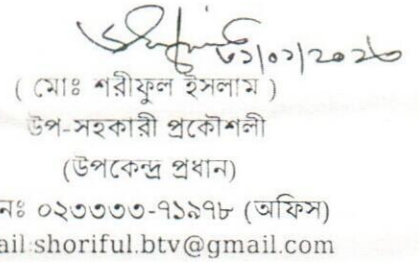 ৩১/০১/২০২৩
( মোঃ শরীফুল ইসলাম )
উপ-সহকারী প্রকৌশলী
(উপকেন্দ্র প্রধান)
নঃ ০২৩৩৩৩-৭১৯৭৮ (অফিস)
ail:shoriful.btv@gmail.com